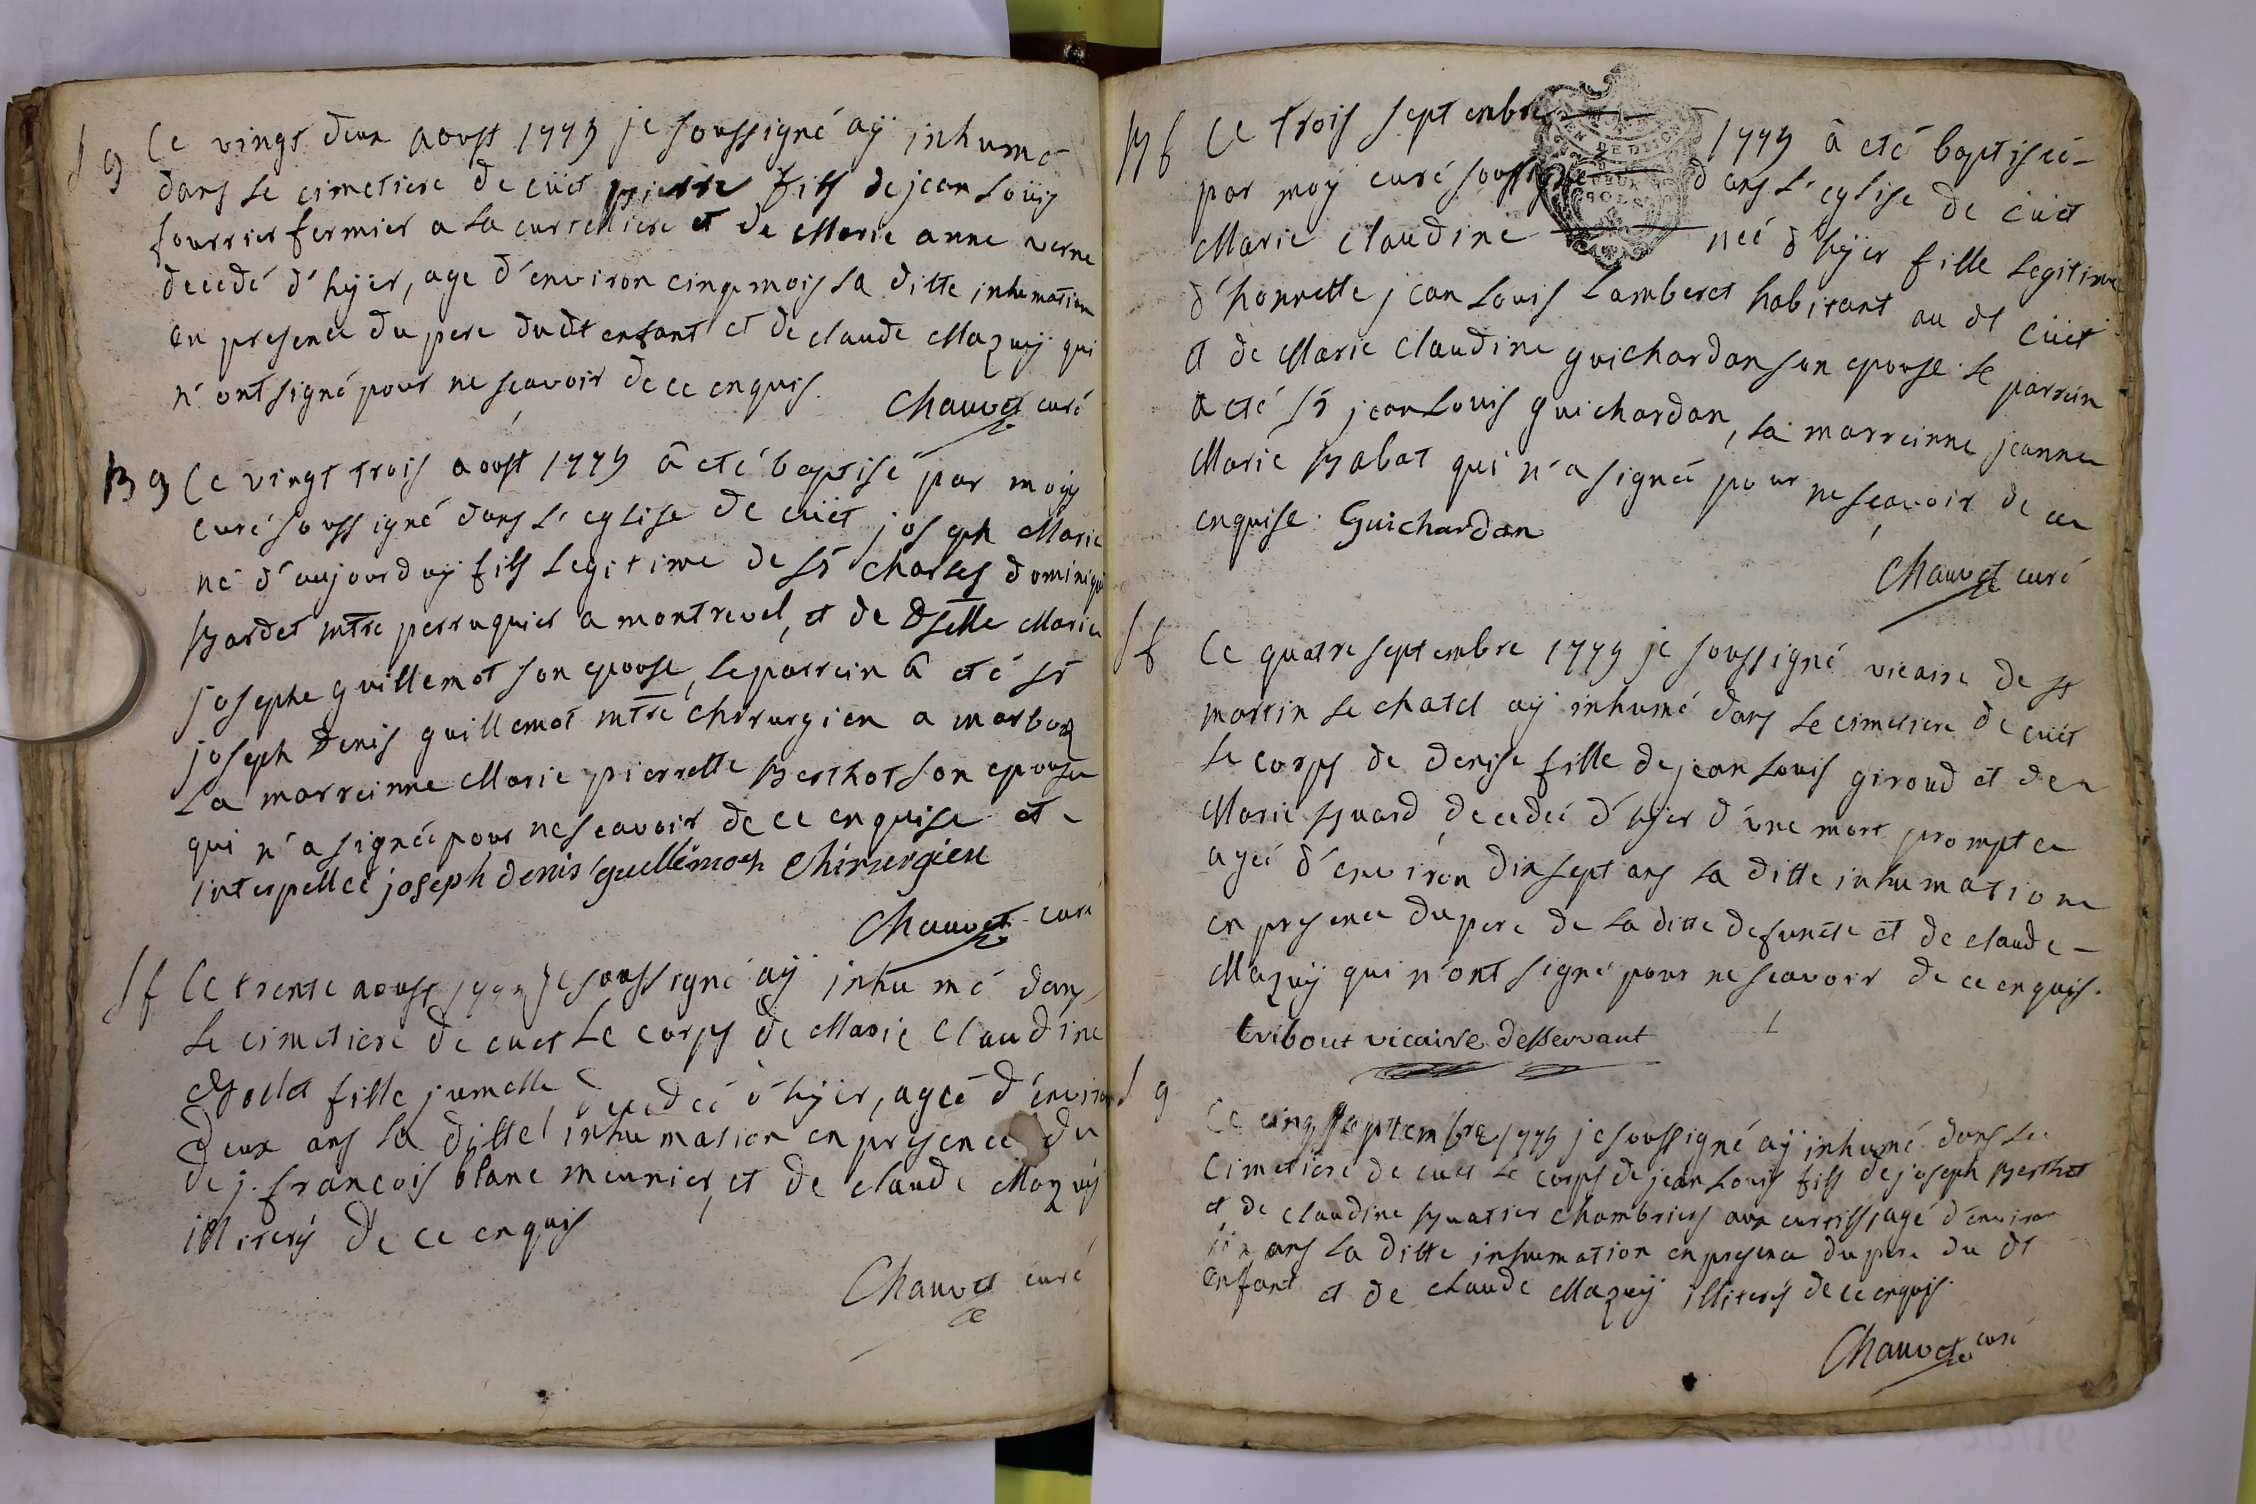 S g Ce vingt deux aoust 1779 je soussigné aÿ inhumé
dans le cimetiere de cüet pierre fils de jean Loüis
fourrier fermier a la curtelliere et de Marie anne verne
decedé d'hÿer, age d'environ cinq mois la ditte inhumation
en presence du pere dudt enfant et de claude Mazuÿ qui
n'ont signé pour ne scavoir de ce enquis.
Chauvet curé
B g Ce vingt trois aoust 1779 â eté baptisé par moÿ
curé soussigné dans L'eglise de cüet joseph Marie
né d'aujourduÿ fils Legitime de sr charles dominique
Bardet mtre perruquier a montrevel, et de dselle Marie
josephe guillemot son epouse, le parrein â eté sr
joseph denis guillemot mtre chirurgien a marboz
La marreinne Marie pierrette Berthot son epouse
qui n'a signée pour ne scavoir de ce enquise et
interpellée joseph denis guillemot chirurgien
Chauvet curé
S f Ce trente aoust 1779 je soussigné aÿ inhumé dans
Le cimetiere de cuet Le corps de Marie Claudine
fille jumelle decedeé d'hÿer, ageé d'environ
deux ans La ditte inhumation en presence du
de j. françois blanc meunier, et de claude Mazuÿ
illiterés de ce enquis
Chauvet curé
B f Ce trois septembre 1779 â eté baptiseé
par moÿ curé soussigné dans L'eglise de cüet
Marie claudine neé d'hÿer fille Legitime
d'honnette jean Louis Lamberet habitant au dt cüet
et de Marie claudine guichardan son epouse le parrein
a eté sr jean Louis guichardan, la marreinne jeanne
Marie Rabat qui n'a signeé pour ne scavoir de ce
enquise. Guichardan
Chauvet curé
S f Ce quatre septembre 1779 je soussigné vicaire de st
martin le chatel aÿ inhumé dans le cimetiere de cüet
le corps de denise fille de jean Louis giroud et de
Marie Buard decedeé d'hÿer d'une mort prompte
ageé d'environ dixsept ans la ditte inhumation
en presence du pere de la ditte defuncte et de claude
Mazuÿ qui n'ont signé pour ne scavoir de ce enquis.
tribout vicaire desservant
S g
Ce cinq septembre 1779 je soussigné aÿ inhumé dans le
Cimetiere de cuet Le corps de jean Louis fils de joseph Berthet
et de claudine Buatier chambriers aux curtils, agé d'environ
six ans la ditte inhumation en presence du pere du dt
enfant et de claude Mazuÿ illiterés de ce enquis.
Chauvet curé